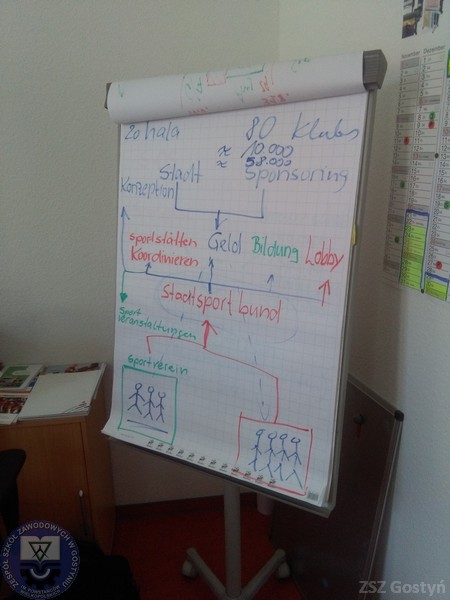 20 hala 80 Klubs
≈ 10.000
≈ 58.000
Stadt Sponsuring
Konzeption
Sportstätten Geld Bildung Lobby
Koordinieren
Stadtsportbund
Sport
veranstaltungen
Sportverein
ZESPÓŁ SZKÓŁ ZAWODOWYCH W GOSTYNIU
ZSZ Gostyń